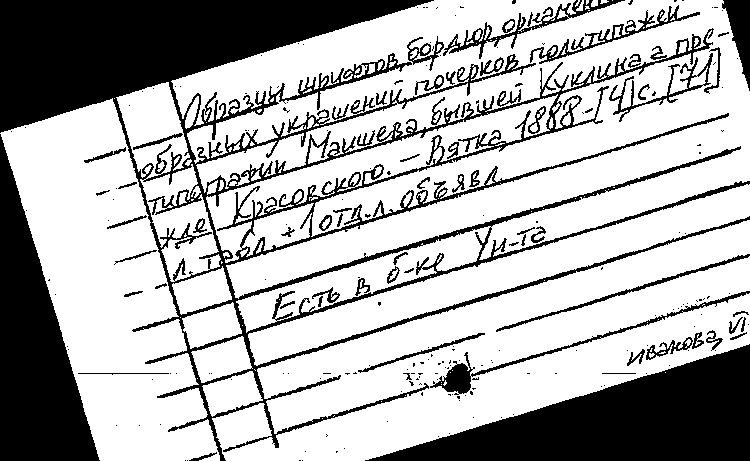 Образцы шрифтов, бордюр, орнаментов,
образных украшений, почерков, политипажей
типографии Маишева, бывшей Куклина, а пре-
жде Красовского. – Вятка, 1888 – [4] с. [71]
л. табл. + 1 отд. л. объявл.
Есть в б-ке Ун-та
Иванова, VI